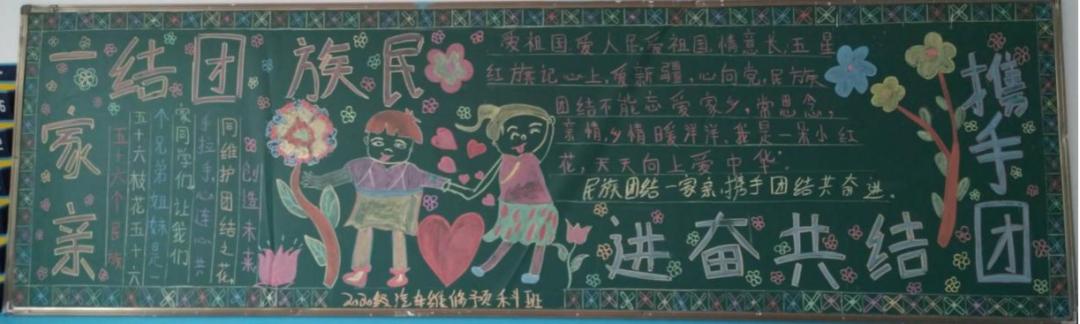 民族团结一家亲
携手团结共奋进
五十六个民族
五十六枝花五十六
个兄弟姐妹是一
家同学们让我们
手拉手心连心共
同维护团结之花
共创造未来
爱祖国,爱人民,爱祖国,情意长,五星
红旗记心上,爱新疆,心向党,民族
团结不能忘,爱家乡,常思念,
亲情,乡情暖洋洋,我是一朵小红
花,天天向上爱中华。
民族团结一家亲,携手团结共奋进。
2020级汽车维修预科班